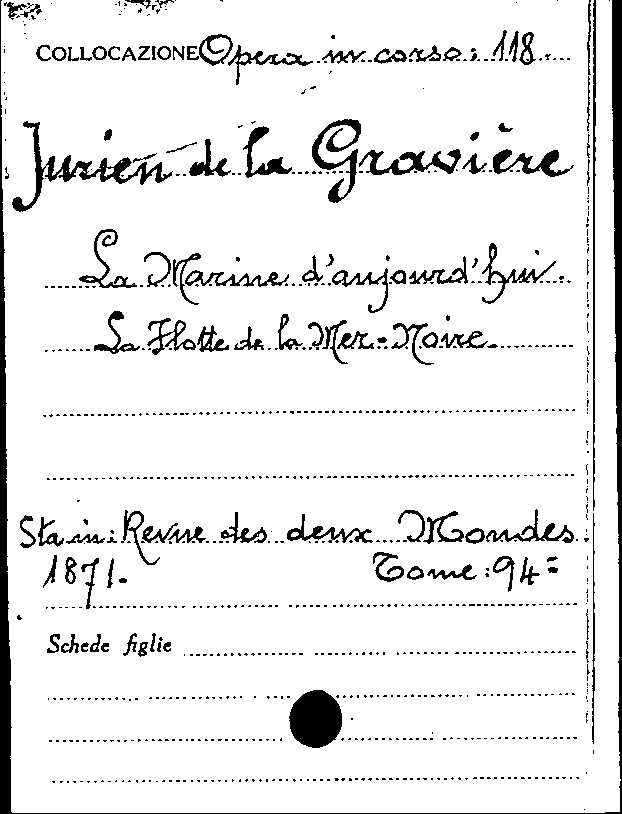 COLLOCAZIONE Opera in corso: 118.
Jurien de la Gravière
La Marine d'aujourd'hui.
La Flotte de la Mer-Noire.
Sta in: Revue des deux Mondes.
1871. Tome: 94=
Schede figlie